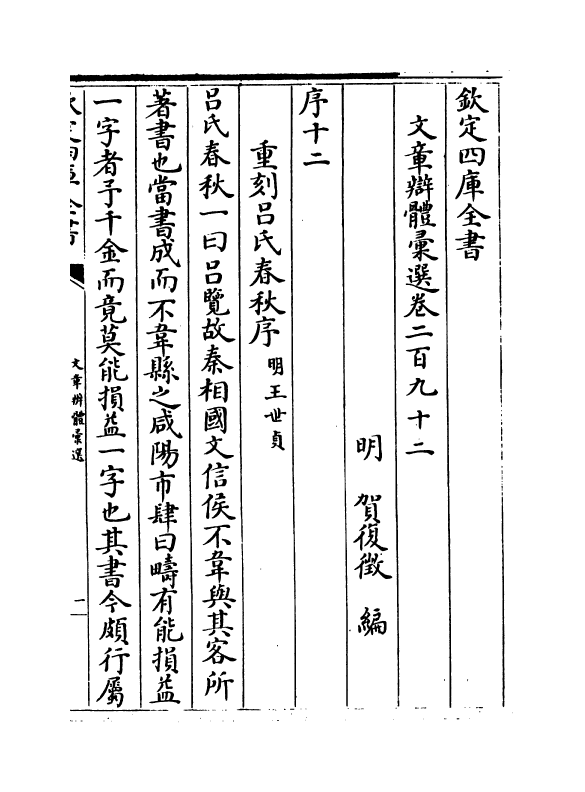 欽定四庫全書
文章辯體彙選卷二百九十二
明 賀復徵 編
序十二
重刻呂氏春秋序 明王世貞
呂氏春秋一曰呂覽故秦相國文信侯不韋與其客所
著書也當書成而不韋縣之咸陽市肆曰疇有能損益
一字者予千金而竟莫能損益一字也其書今頗行屬
文章辨體彙選